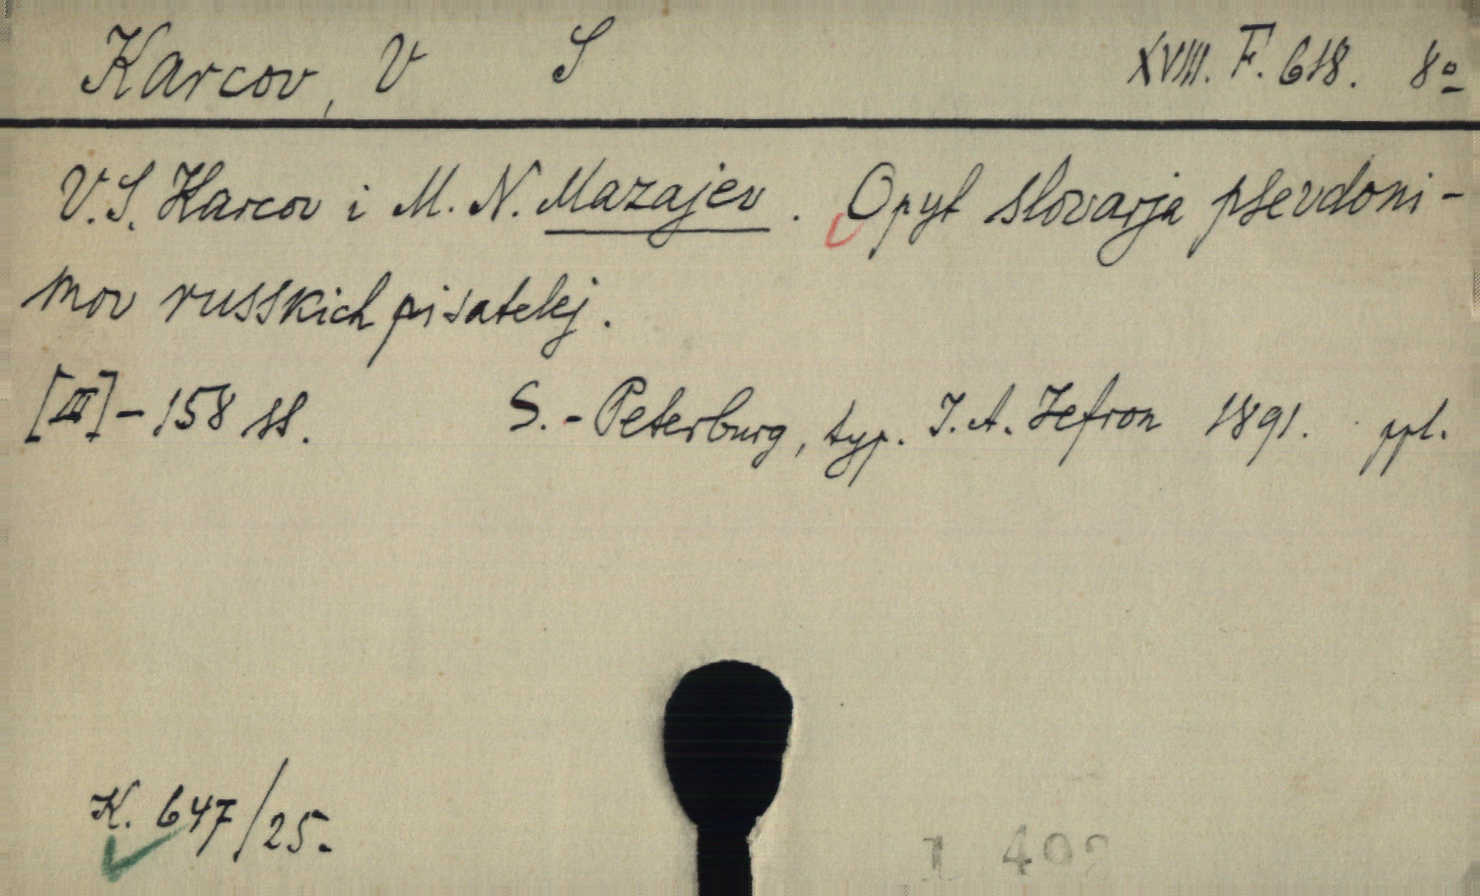 Karcov, V S XVIII. F. 618. 8º
V. S. Karcov i M. N. Mazajev. Opyt slovarja psevdoni-
mov russkich pisatelej.
[III]-158 ss. S.-Peterburg, typ. I. A. Jefron 1891. ppl.
K. 647/25.
1 402